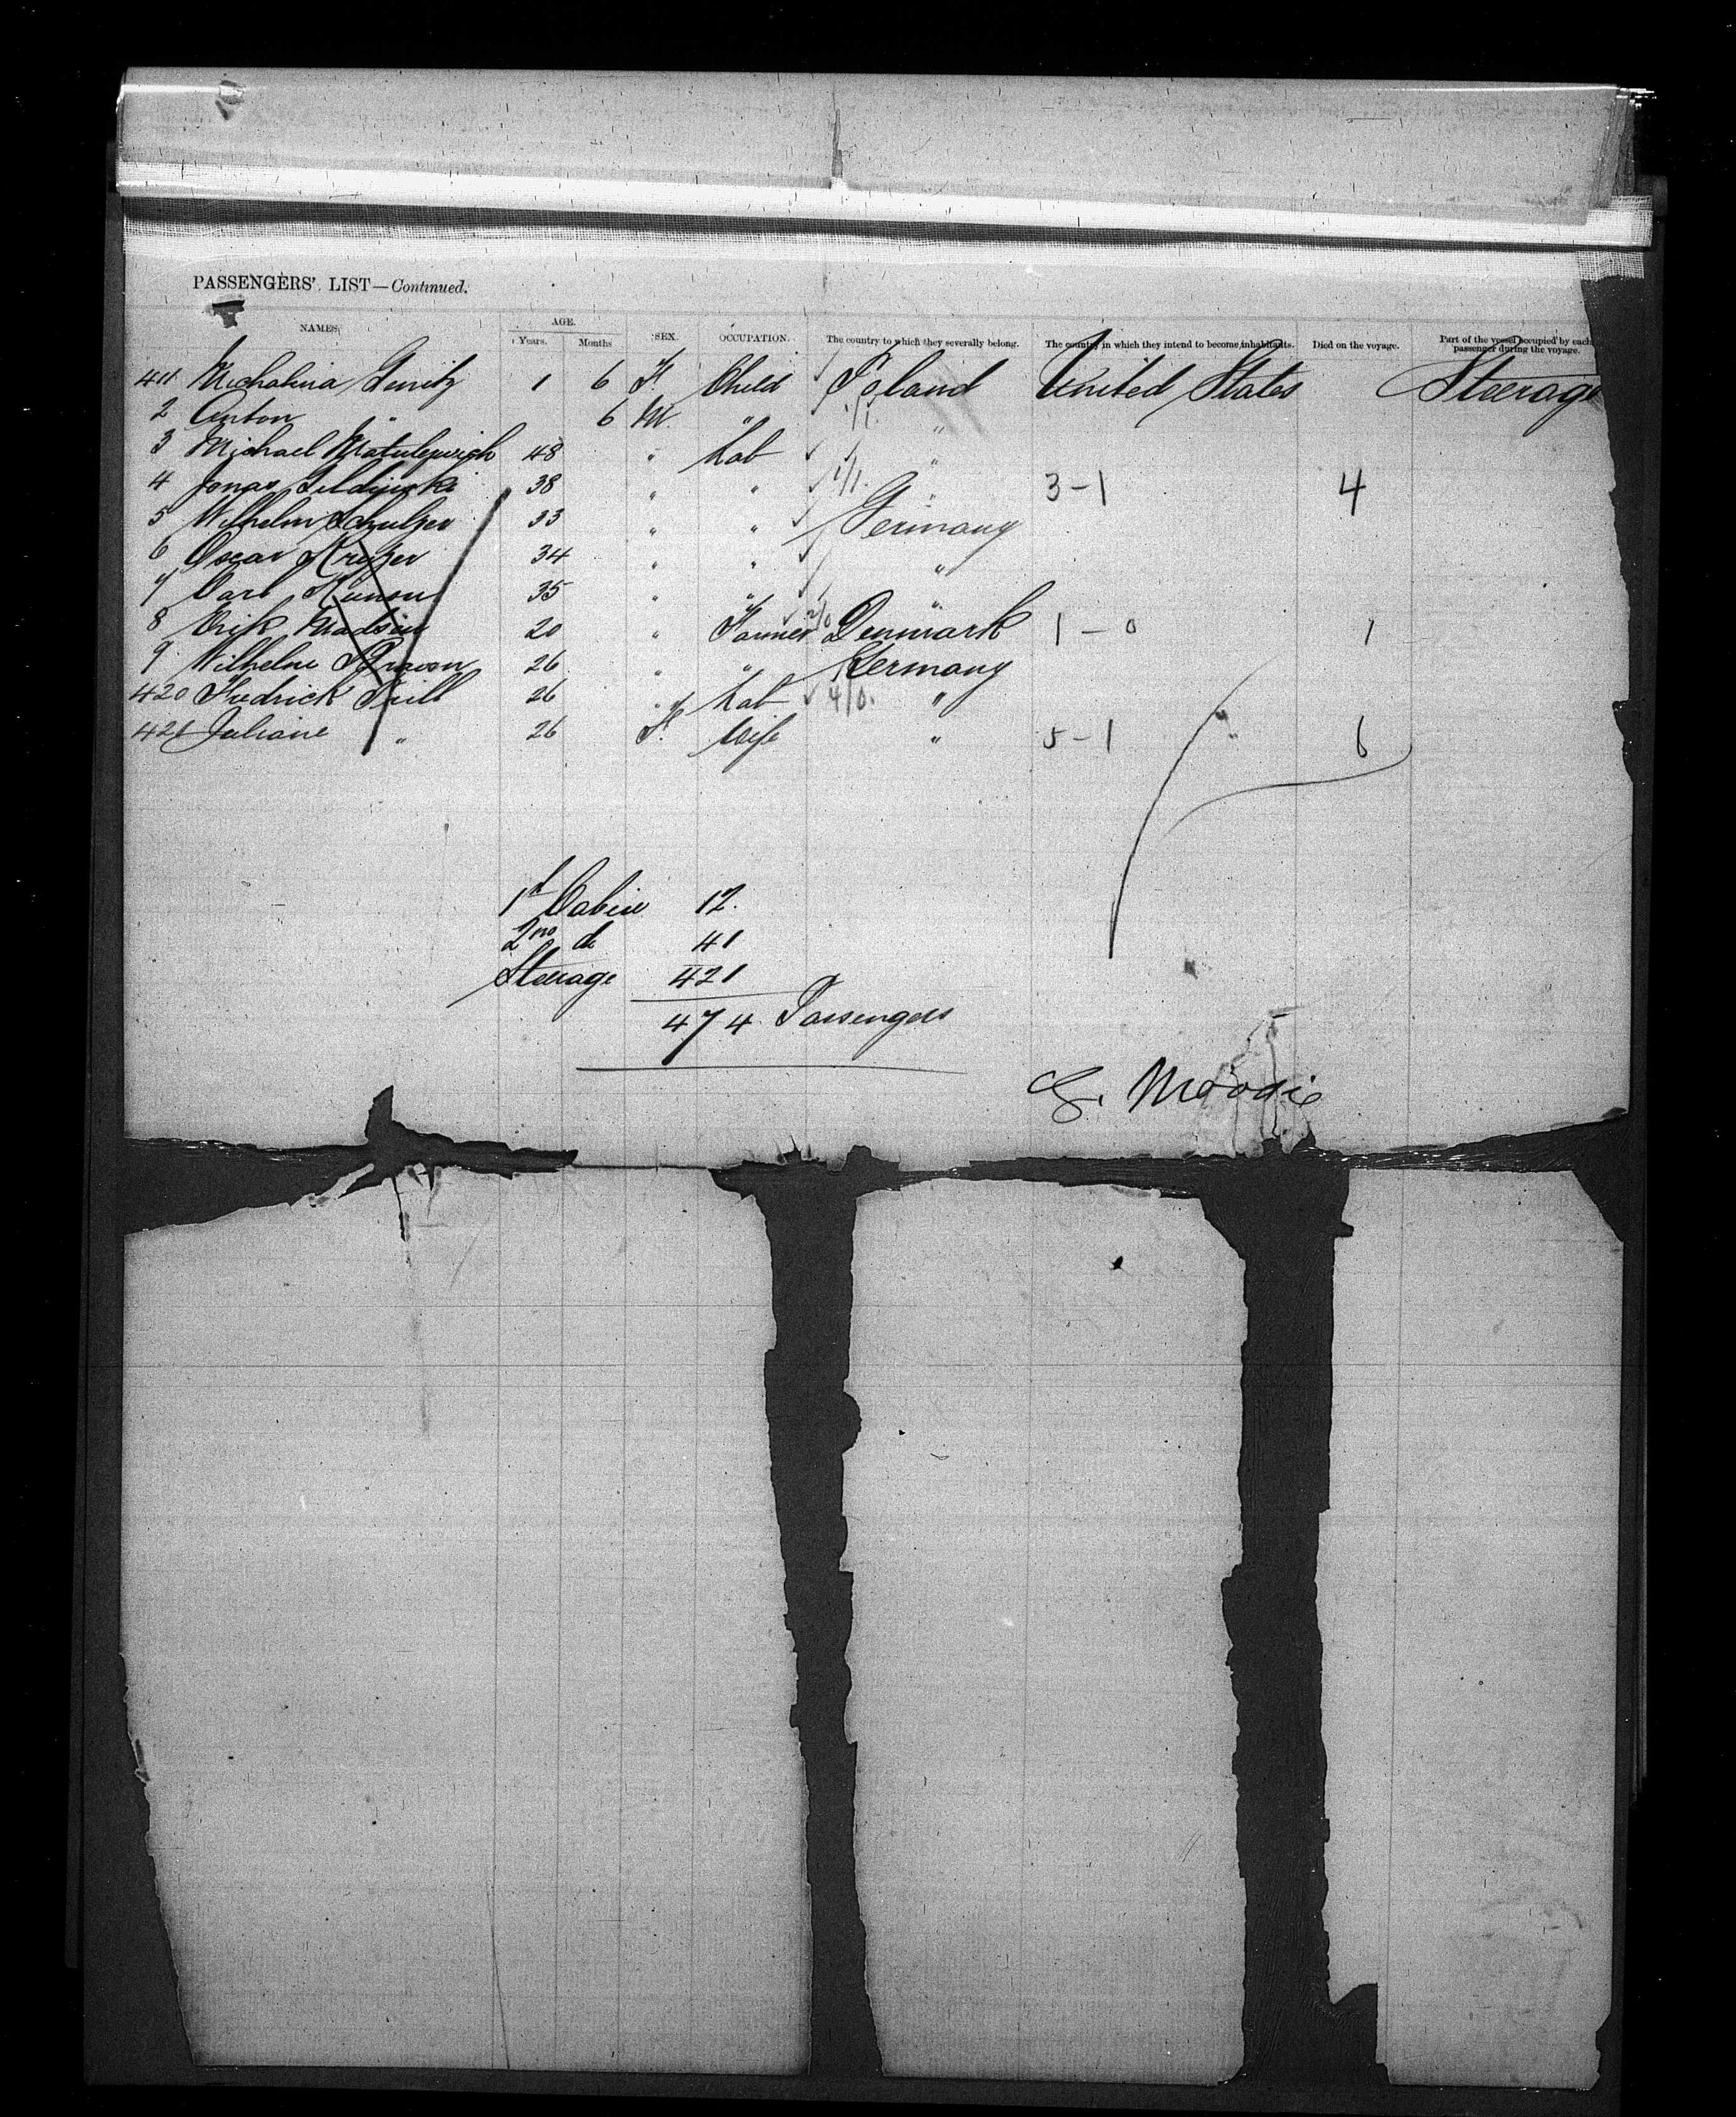 PASSENGERS' LIST—Continued.
NAMES, AGE. Years. Months SEX. OCCUPATION. The country to which they severally belong. The country in which they intend to become inhabitants. Died on the voyage. Part of the vessel occupied by each passenger during the voyage.
411 Michalina 1 6 F. Child Poland United States Steerage
2 Anton " 6 M. " 1/1. "
3 Michael 48 " Lab "
4 Jonas 38 " " 1/1. " 3-1 4
5 Wilhelm Schulzer 33 " " Germany
6 Oscar Kruger 34 " " "
7 Carl 35 " " "
8 Erik Madsen 20 " Farmer 2/0 Denmark 1-0 1
9 Wilhelm 26 " " Germany
420 Fredrick 26 " Lab 4/0. "
421 Juliane " 26 F. Wife " 5-1 " 6
1st Cabin 12.
2nd do 41
Steerage 421
474 Passengers
G. Moodie